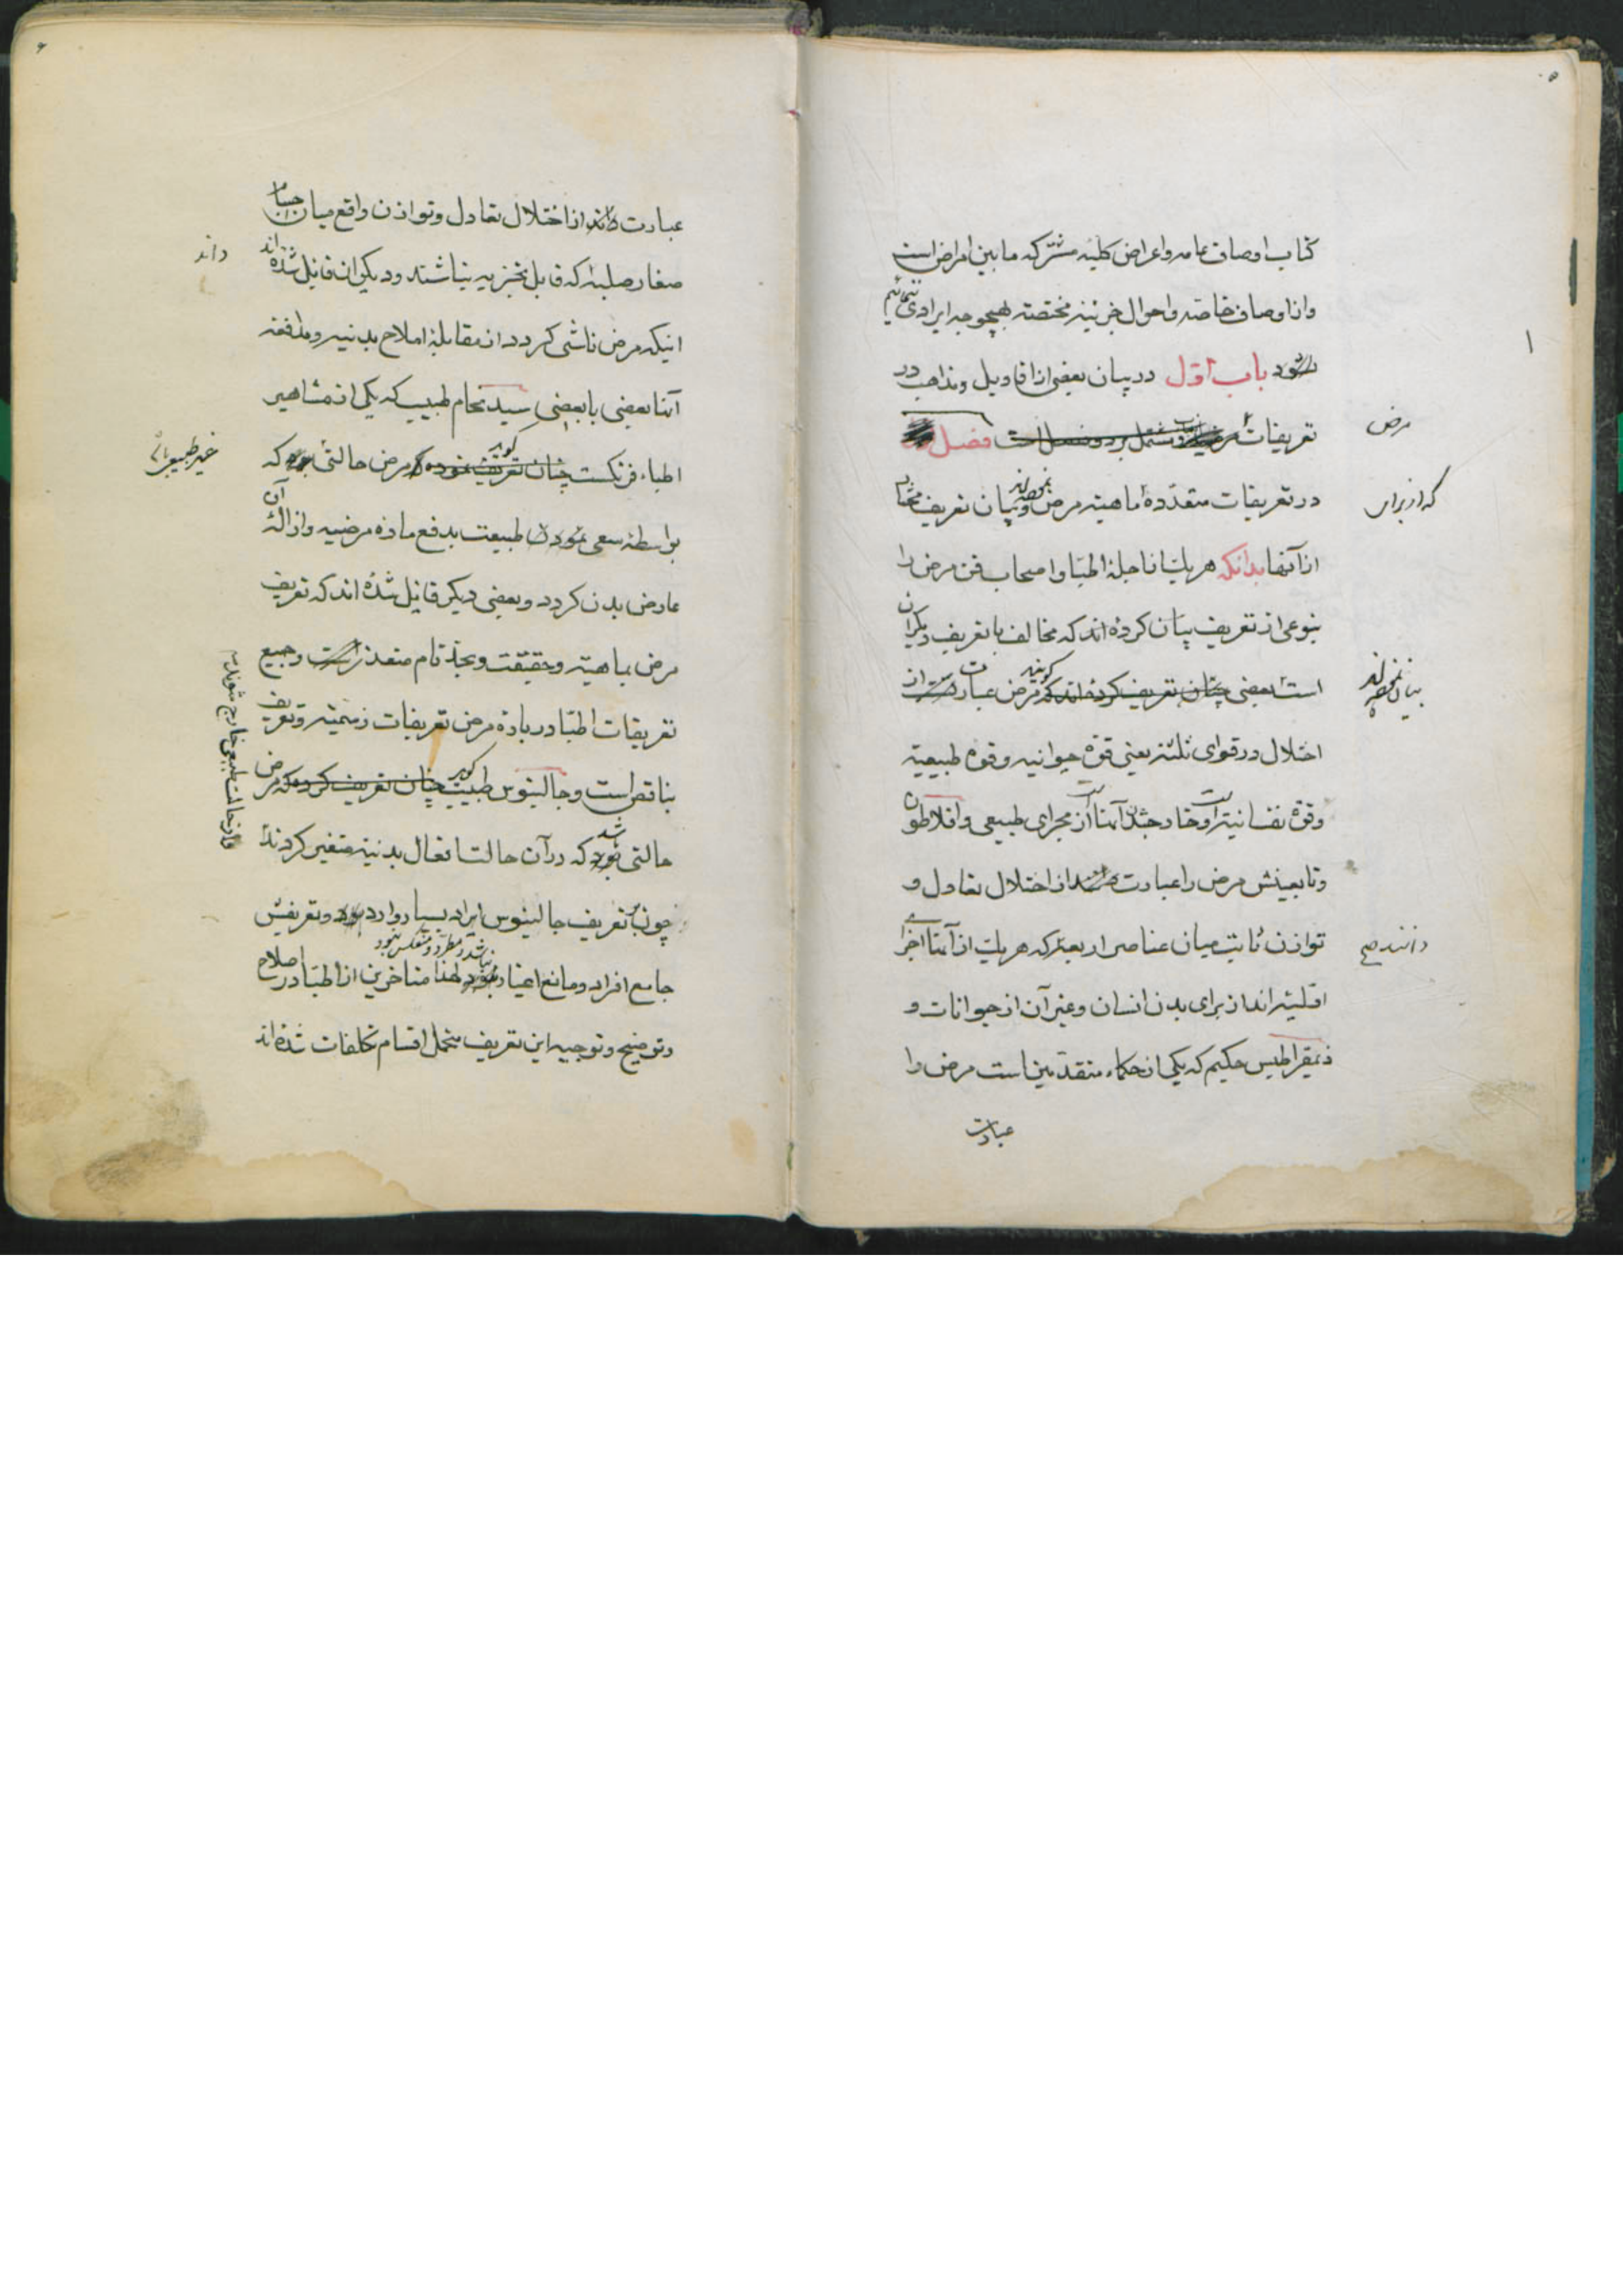 ۵
کتاب اوصاف عامه و اعراض کلیه مشترکه ما بین امراض است
و از اوصاف خاصه و احوال جزئیه مختصه بهیچوجه ایرادی
باب اول در بیان بعضی از اقاویل و مذاهب در
مرض
تعریفات فصل
در تعریفات متعدده ماهیة مرض و بیان تعریف مختار
که از برای
از آنها بدانکه هر یک از اجلهٔ اطبا و اصحاب فن مرض را
بنوعی از تعریف بیان کرده اند که مخالف با تعریف دیگران
بیان نموده اند
است بعضی چنان تعریف کرده اند که گویند مرض عبارت از
اختلال در قوای ثلثه یعنی قوهٔ حیوانیه و قوه طبیعیة
و قوهٔ نفسانیه و خارج شدن آنها از مجرای طبیعی و افلاطون
و تابعینش مرض را عبارت از اختلال تعادل و
توازن ثابت میان عناصر اربعه که هر یک از آنها اجزا
دانند صح
اولیه اند از برای بدن انسان و غیر آن از حیوانات و
ذیمقراطیس حکیم که یکی از حکماء متقدمین است مرض را
عبارت
۶
عبارت از اختلال تعادل و توازن واقع میان اجسام
داند
صغار صلبه که قابل تجزیه نباشند و دیگران قائل شده اند
اینکه مرض ناشی گردد از مقابلهٔ املاح بدنیه و مدافعه
آنها بعضی با بعضی سیدنهام طبیب که یکی از مشاهیر
اطباء فرنگست چنان تعریف نموده که گوید مرض حالتی که
غیر طبیعی
بواسطهٔ سعی نمودن طبیعت بدفع ماده مرضیه و ازالهٔ آن
عارض بدن گردد و بعضی دیگر قائل شده اند که تعریف
مرض بماهیة و حقیقت و بحد تام متعذر است و جمیع
تعریفات اطبا در باره مرض تعریفات رسمیه و تعریف
بناقص است و جالینوس طبیب چنان تعریف کرده که گوید مرض
حالتی بود باشد که در آن حالت افعال بدنیه متغیر گردند
و از حالت طبیعی خارج شوند
چون بر تعریف جالینوس ایراد بسیار وارد بود و تعریفش
نباشد و مطرد و منعکس نبود
جامع افراد و مانع اغیار نبود لهذا متاخرین از اطبا در اصلاح
و توضیح و توجیه این تعریف متحمل اقسام تکلفات شده اند